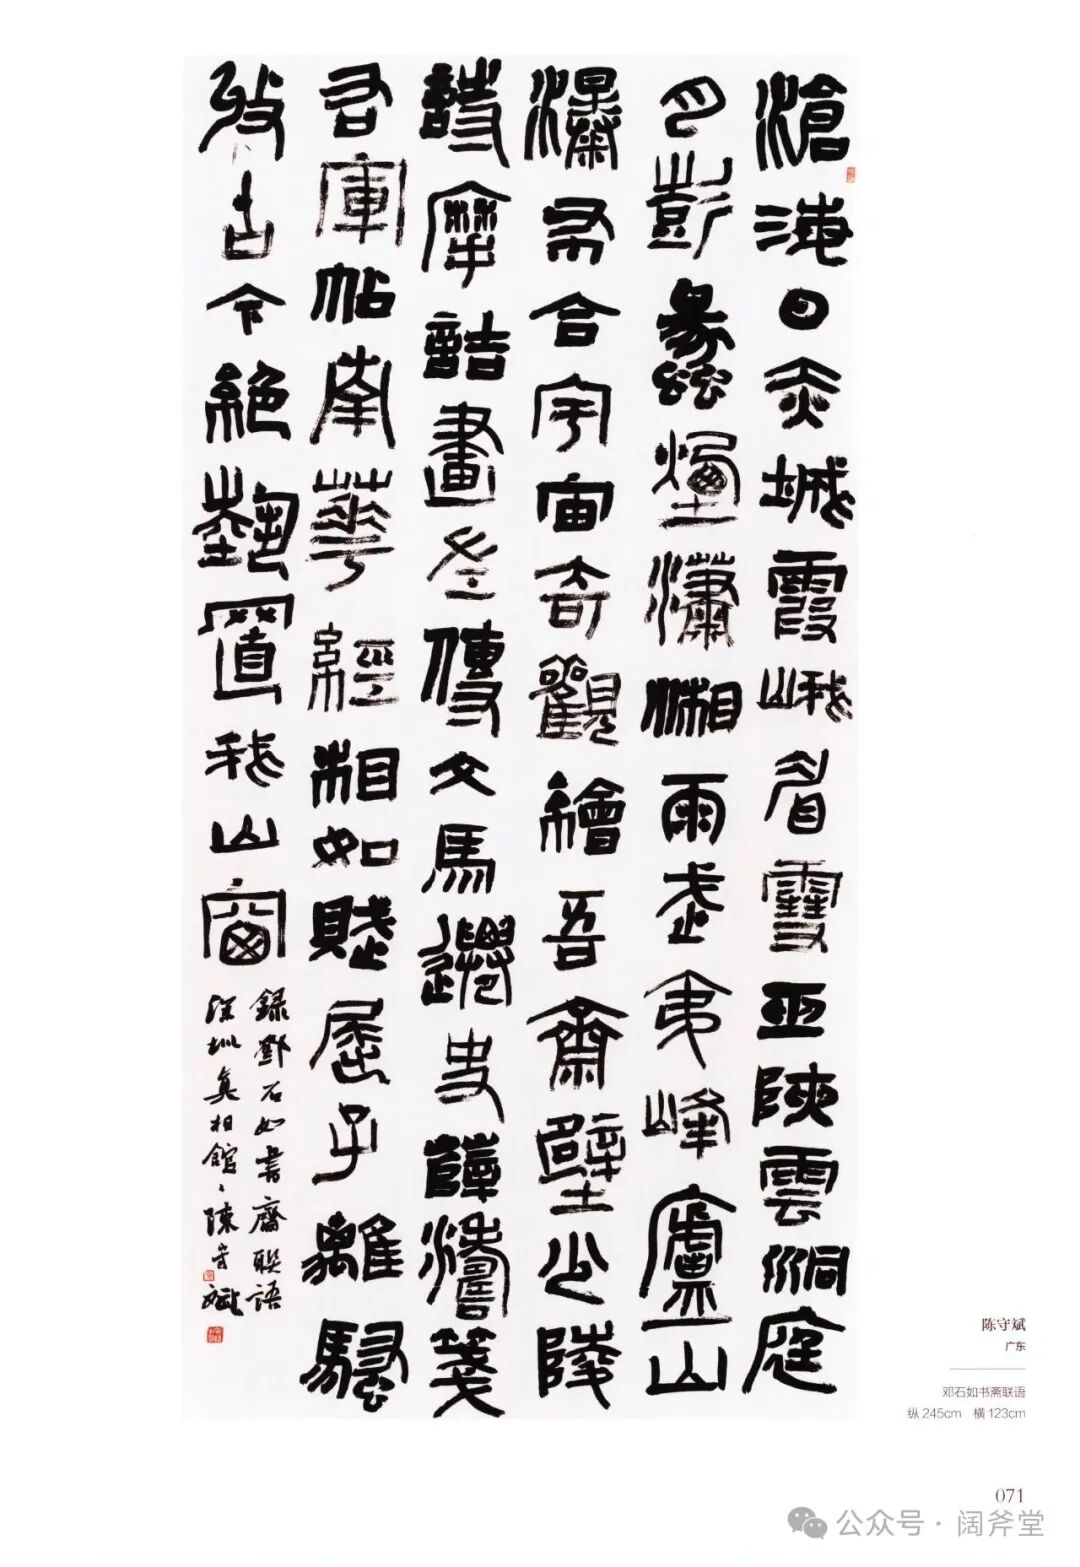 滄海日赤城霞峨眉雪巫陜雲洞庭
月彭蠡煙瀟湘雨武夷峰廬山
瀑布合宇宙奇觀繪吾齋壁少陵
詩摩詰畫左傳文馬遷史薛濤箋
右軍帖南華經相如賦屈子離騷
收古今絕藝置我山窗
錄鄧石如書齋聯語
深圳真相館陳守斌
陈守斌
广东
邓石如书斋联语
纵 245cm 横 123cm
071
公众号 · 阔斧堂